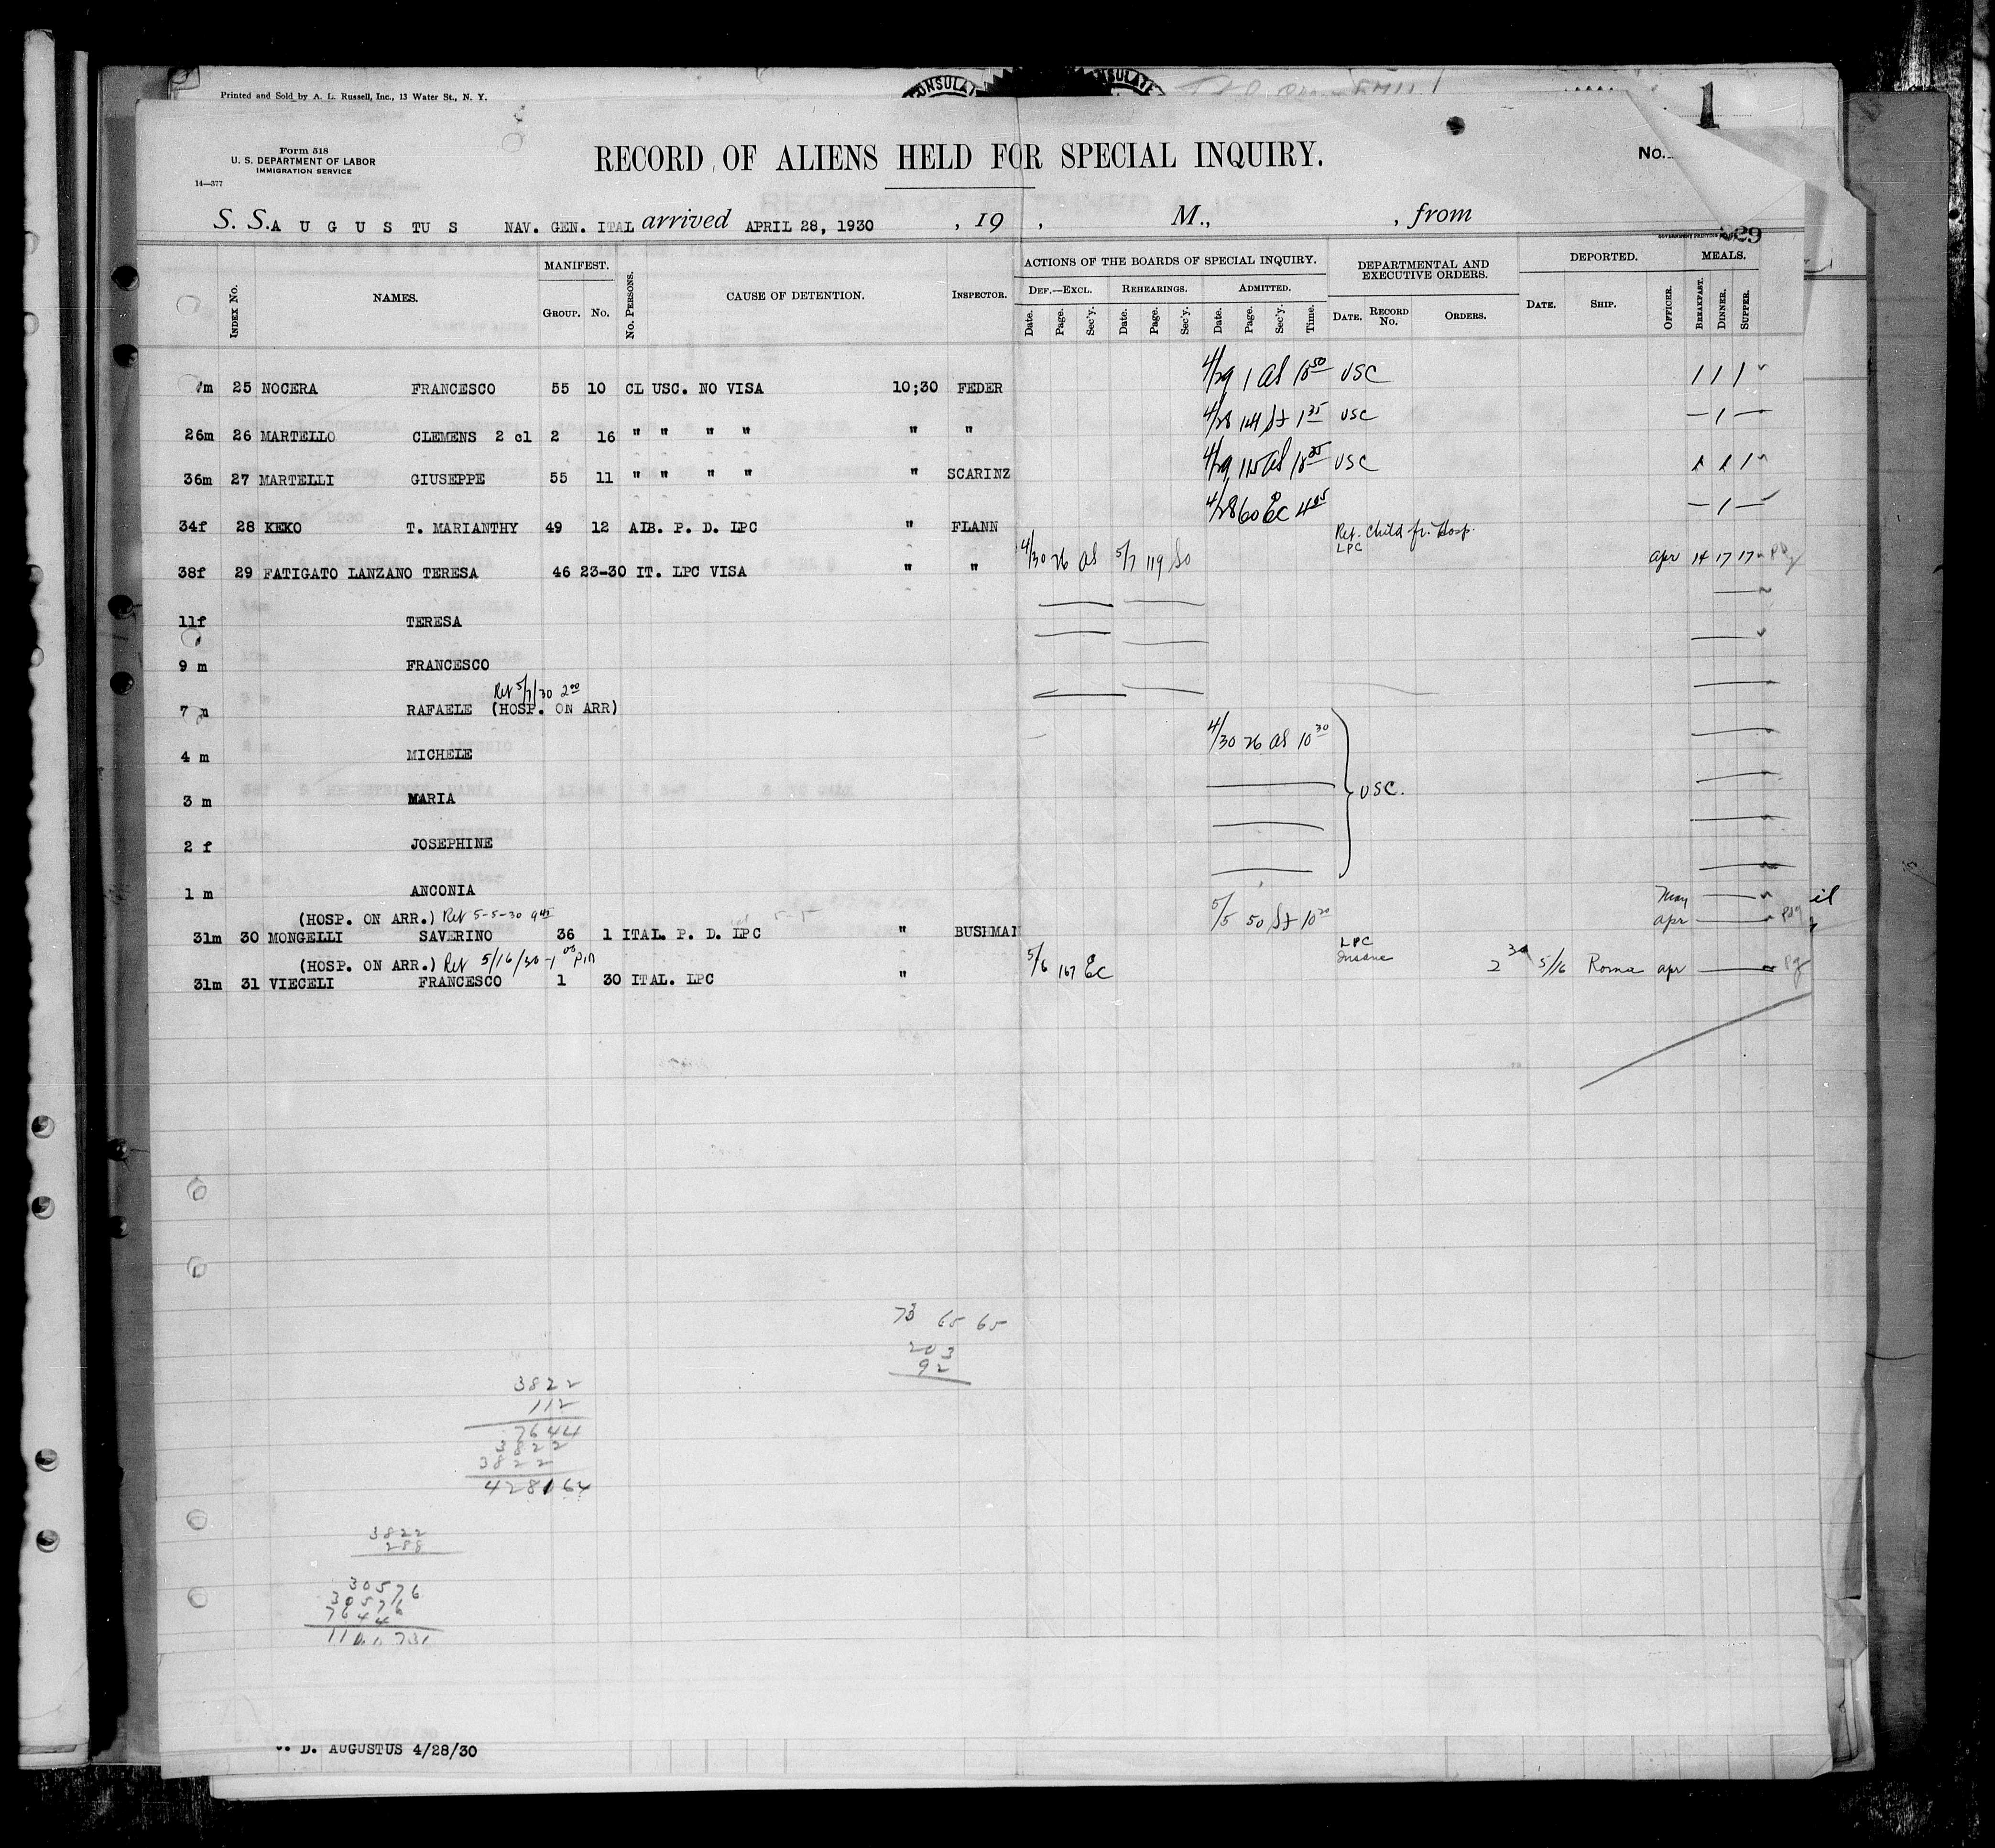 CONSULATE CONSULATE
Printed and Sold by A. L. Russell, Inc., 13 Water St., N. Y.
1
Form 518
U. S. DEPARTMENT OF LABOR
IMMIGRATION SERVICE
14—377
RECORD OF ALIENS HELD FOR SPECIAL INQUIRY.
No.
S. S. A U G U S TU S NAV. GEN. ITAL arrived APRIL 28, 1930 , 19 , M., , from
29
MANIFEST. ACTIONS OF THE BOARDS OF SPECIAL INQUIRY. DEPARTMENTAL AND EXECUTIVE ORDERS. DEPORTED. MEALS.
INDEX No. NAMES. GROUP. No. No. PERSONS. CAUSE OF DETENTION. INSPECTOR. DEF.—EXCL. REHEARINGS. ADMITTED.
Date. Page. Sec'y. Date. Page. Sec'y. Date. Page. Sec'y. Time. DATE. RECORD No. ORDERS. DATE. SHIP. OFFICER. BREAKFAST. DINNER. SUPPER.
m 25 NOCERA FRANCESCO 55 10 CL USC. NO VISA 10;30 FEDER 4/29 1 as 10 50 USC 1 1 1
26m 26 MARTELLO CLEMENS 2 cl 2 16 " " " " " " 4/28 144 St 1 35 USC — 1 —
36m 27 MARTELLI GIUSEPPE 55 11 " " " " " SCARINZ 4/29 115 as 10 35 USC 1 1 1
34f 28 KEKO T. MARIANTHY 49 12 AIB. P. D. LPC " FLANN 4/28 60 EC 4 45 — 1 —
Ret. Child fr. Hosp.
LPC
38f 29 FATIGATO LANZANO TERESA 46 23-30 IT. LPC VISA " " 4/30 26 as 5/7 119 So apr 14 17 17
11f TERESA
9 m FRANCESCO
Ret 5/7/30 2 00
7 m RAFAELE (HOSP. ON ARR)
4 m MICHELE 4/30 26 as 10 30
3 m MARIA USC.
2 f JOSEPHINE
1 m ANCONIA
May
(HOSP. ON ARR.) Ret 5-5-30 9 45
31m 30 MONGELLI SAVERINO 36 1 ITAL. P. D. LPC " BUSHMAN 5/5 50 St 10 20 apr
(HOSP. ON ARR.) Ret 5/16/30 - 1 05 PM
LPC
Insane
31m 31 VIECELI FRANCESCO 1 30 ITAL. LPC " 5/6 167 EC 2 30 5/16 Roma apr
73 65 65
203
92
3822
112
7644
3822
3822
428164
3822
288
30576
30576
7644
D. AUGUSTUS 4/28/30